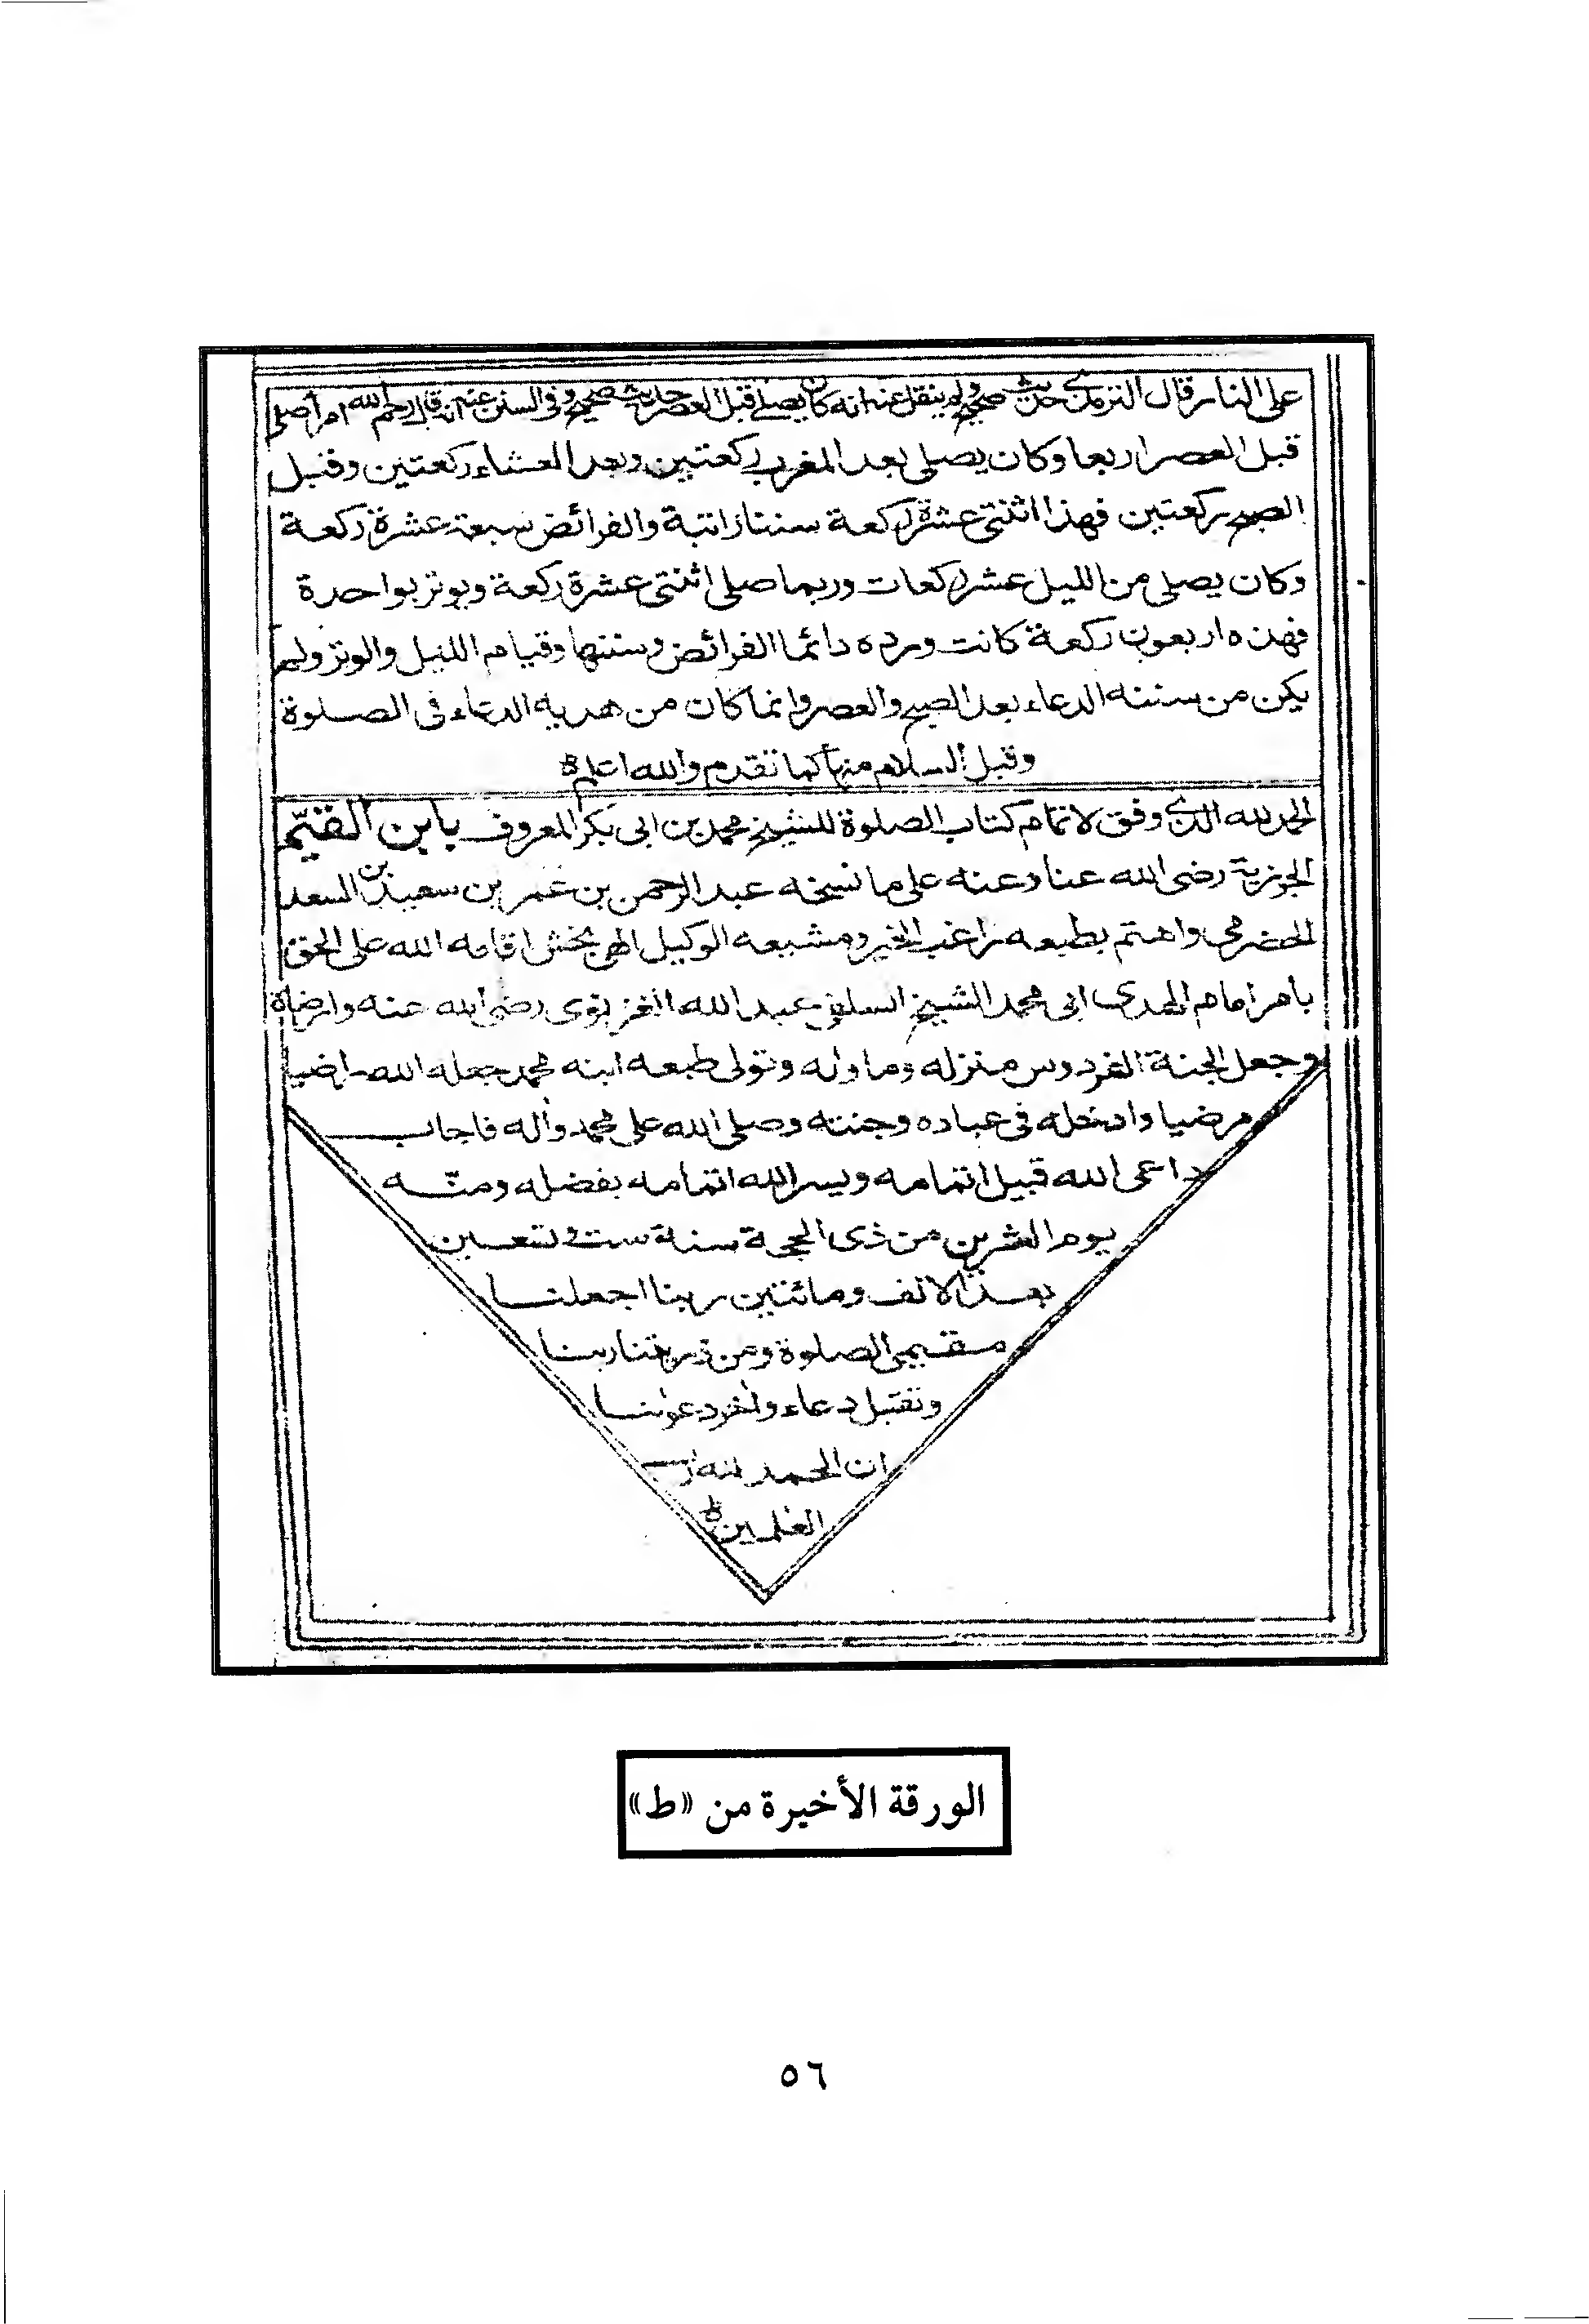 على النار قال الترمذي حديث صحيح ولم ينقل عنه انه كان يصلي قبل العصر حديث صحيح وفى السنن عنه انه قال رحم الله امرأ صلى
قبل العصر اربعا وكان يصلي بعد المغرب ركعتين وبعد العشاء ركعتين وقبل
الصبح ركعتين فهذا اثنتى عشرة ركعة سننا راتبة والفرائض سبعة عشرة ركعة
وكان يصلي من الليل عشر ركعات وربما صلى اثنتى عشرة ركعة ويوتر بواحدة
فهذه اربعون ركعة كانت ورده دائما الفرائض وسننها وقيام الليل والوتر ولم
يكن من سنته الدعاء بعد الصبح والعصر وانما كان من هديه الدعاء فى الصلوة
وقبل السلام منها كما تقدم والله اعلم
الحمد لله الذى وفق لاتمام كتاب الصلوة للشيخ محمد بن ابى بكر المعروف بابن القيّم
الجوزية رضى الله عنا وعنه على ما نسخه عبد الرحمن بن عمر بن سعيد بن السعد
الحضرمى واهتم بطبعه راغب الخير ومشيعه الوكيل الهى بخش اقامه الله على الحق
بامر امام الهدى ابى محمد الشيخ السلفى عبد الله الغزنوى رضى الله عنه وارضاه
وجعل الجنة الفردوس منزله وماوله وتولى طبعه ابنه محمد جعله الله راضيا
مرضيا وادخله فى عباده وجنته وصلى الله على محمد وآله فاجاب
داعى الله قبيل اتمامه ويسر الله اتمامه بفضله ومنّه
يوم العشرين من ذى الحجة سنة ست وتسعين
بعد الالف ومائتين ربنا اجعلنا
مقيمى الصلوة ومن ذريتنا ربنا
وتقبل دعاء واٰخر دعوٰنا
ان الحمد لله رب
العٰلمين
الورقة الأخيرة من «ط»
٥٦